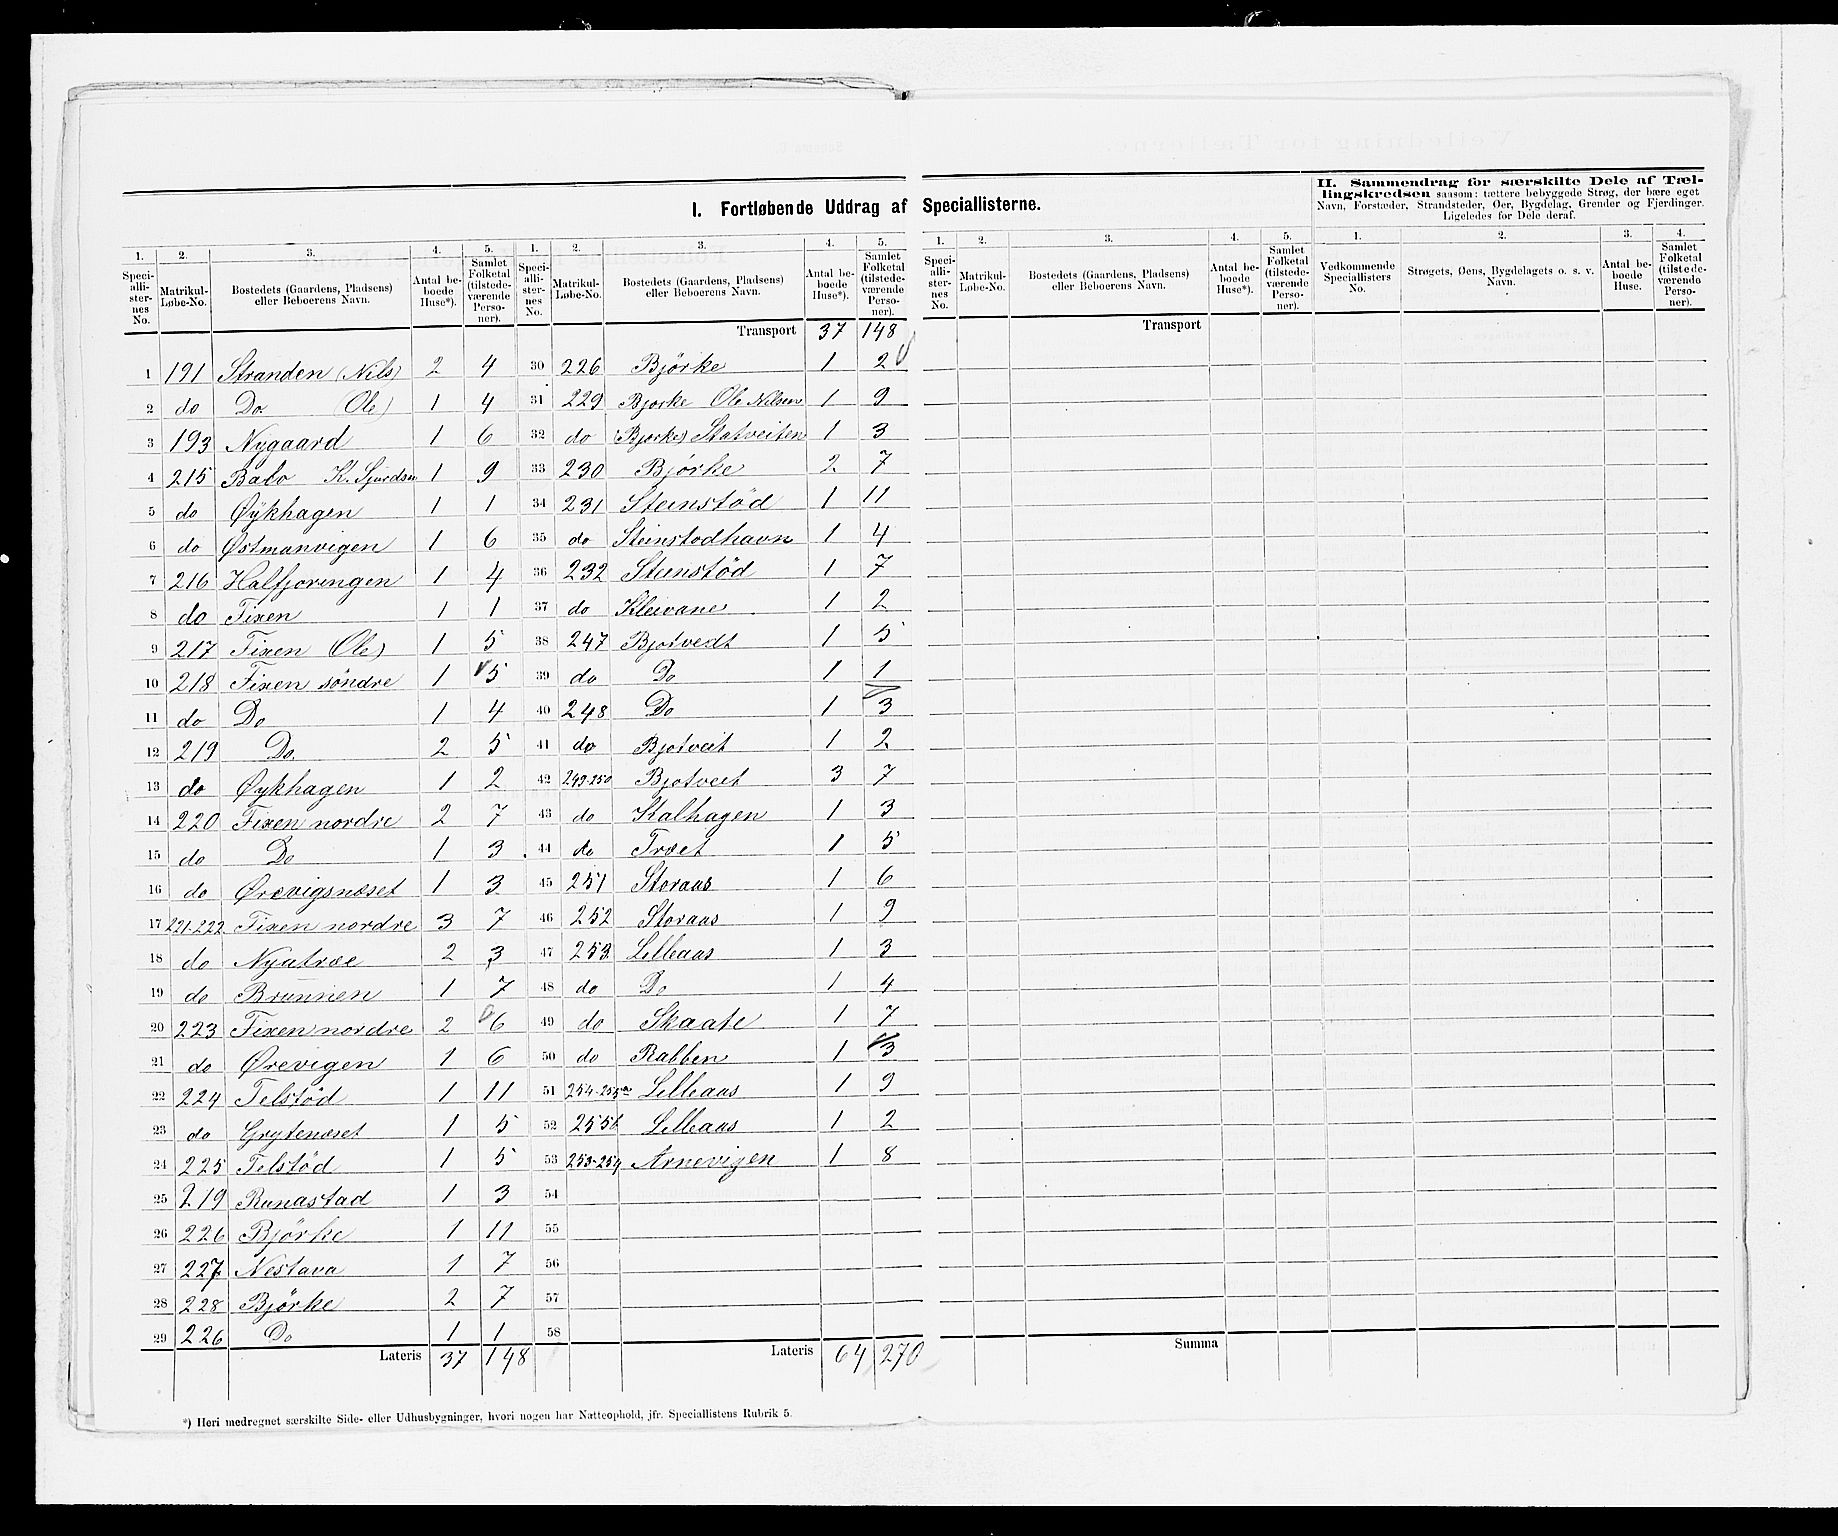 I. Fortløbende Uddrag af Speciallisterne.
II. Sammendrag for særskilte Dele af Tæl-
lingskredsen saasom: tættere bebyggede Strøg, der bære eget
Navn, Forstæder, Strandsteder, Øer, Bygdelag, Grender og Fjerdinger.
Ligeledes for Dele deraf.
1. 2. 3. 4. 5. 1. 2. 3. 4. 5. 1. 2. 3. 4. 5. 1. 2. 3. 4.
Speci-alli-ster-nes No. Matrikul-Løbe-No. Bostedets (Gaardens, Pladsens) eller Beboerens Navn. Antal be-boede Huse*). Samlet Folketal (tilstede-værende Perso-ner).
Speci-alli-ster-nes No. Matrikul-Løbe-No. Bostedets (Gaardens, Pladsens) eller Beboerens Navn. Antal be-boede Huse*). Samlet Folketal (tilstede-værende Perso-ner).
Speci-alli-ster-nes No. Matrikul-Løbe-No. Bostedets (Gaardens, Pladsens) eller Beboerens Navn. Antal be-boede Huse*). Samlet Folketal (tilstede-værende Perso-ner).
Vedkommende Speciallisters No. Strøgets, Øens, Bygdelagets o. s. v. Navn. Antal be-boede Huse. Samlet Folketal (tilstede-værende Perso-ner).
1 191 Stranden (Nils) 2 4
2 do Do (Ole) 1 4
3 193 Nygaard 1 6
4 215 Balo K. Sjurdsen 1 9
5 do Øykhagen 1 1
6 do Østmanvigen 1 6
7 216 Halfjoringen 1 4
8 do Fixen 1 1
9 217 Fixen (Ole) 1 5
10 218 Fixen söndre 1 5
11 do Do 1 4
12 219 Do 2 5
13 do Øykhagen 1 2
14 220 Fixen nordre 2 7
15 do Do 1 3
16 do Ørevigsnæset 1 3
17 221-222 Fixen nordre 3 7
18 do Nyatræe 2 3
19 do Brunnen 1 7
20 223 Fixen nordre 2 6
21 do Ørevigen 1 6
22 224 Telstöd 1 11
23 do Grytenæset 1 5
24 225 Telstöd 1 5
25 219 Runastad 1 3
26 226 Björke 1 11
27 227 Nestava 1 7
28 228 Björke 2 7
29 226 Do 1 1
Lateris 37 148
Transport 37 148
30 226 Björke 1 2
31 229 Bjorke Ole Nilsen 1 9
32 do (Bjorke) Statveiten 1 3
33 230 Björke 2 7
34 231 Steinstöd 1 11
35 do Steinstodhavn 1 4
36 232 Steinstöd 1 7
37 do Kleivane 1 2
38 247 Bjotvedt 1 5
39 do Do 1 1
40 248 Do 1 3
41 do Bjotveit 1 2
42 249-250 Bjotveit 3 7
43 do Kalhagen 1 3
44 do Træet 1 5
45 251 Storaas 1 6
46 252 Storaas 1 9
47 253 Lilleaas 1 3
48 do Do 1 4
49 do Skaate 1 7
50 do Rabben 1 3
51 254-255a Lilleaas 1 9
52 255b Lilleaas 1 2
53 253-254 Arnevigen 1 8
54
55
56
57
58
Lateris 64 270
Transport
Summa
*) Heri medregnet særskilte Side- eller Udhusbygninger, hvori nogen har Natteophold, jfr. Speciallistens Rubrik 5.